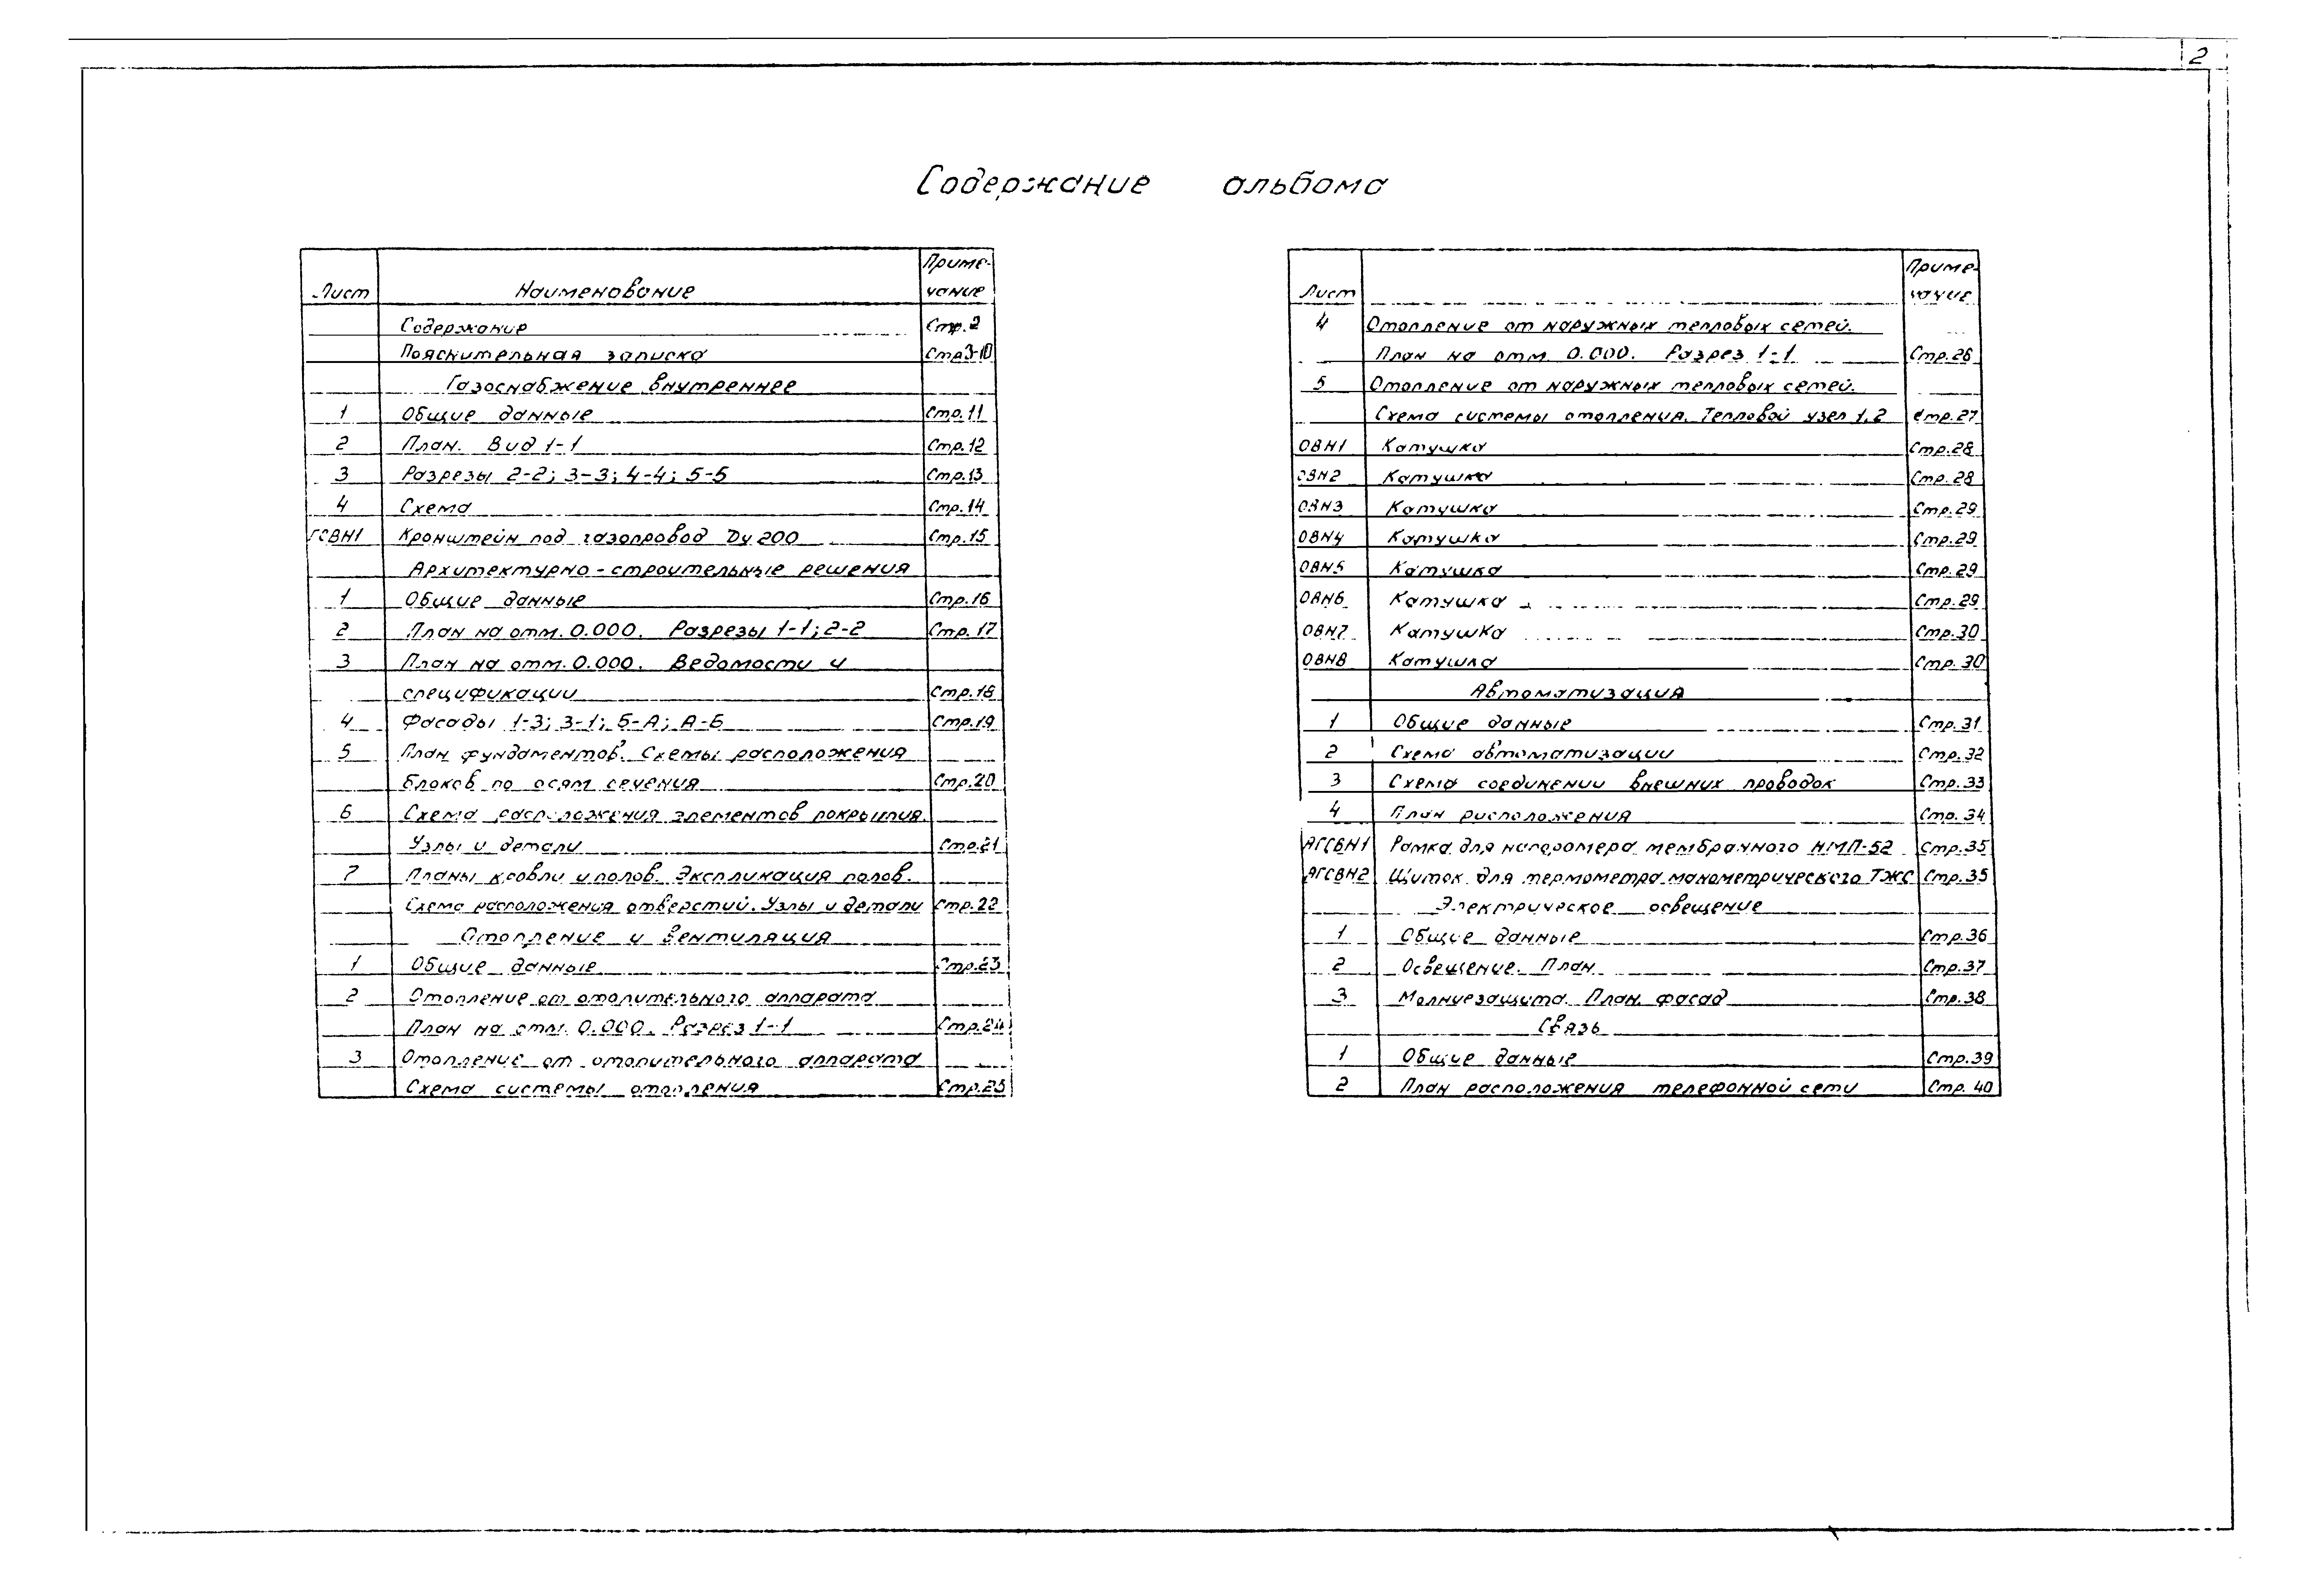 2
Содержание альбома
Лист Наименование Примечание
Содержание Стр.2
Пояснительная записка Стр.3-10
Газоснабжение внутреннее
1 Общие данные Стр.11
2 План. Вид 1-1 Стр.12
3 Разрезы 2-2; 3-3; 4-4; 5-5 Стр.13
4 Схема Стр.14
ГСВН1 Кронштейн под газопровод Ду 200 Стр.15
Архитектурно-строительные решения
1 Общие данные Стр.16
2 План на отм. 0.000. Разрезы 1-1; 2-2 Стр.17
3 План на отм. 0.000. Ведомости и
спецификации Стр.18
4 Фасады 1-3; 3-1; Б-А; А-Б Стр.19
5 План фундаментов. Схемы расположения
блоков по осям сечения Стр.20
6 Схема расположения элементов покрытия.
Узлы и детали Стр.21
7 Планы кровли и полов. Экспликация полов.
Схема расположения отверстий. Узлы и детали Стр.22
Отопление и вентиляция
1 Общие данные Стр.23
2 Отопление от отопительного аппарата
План на отм. 0.000. Разрез 1-1 Стр.24
3 Отопление от отопительного аппарата
Схема системы отопления Стр.25
Лист Примечание
4 Отопление от наружных тепловых сетей.
План на отм. 0.000. Разрез 1-1 Стр.26
5 Отопление от наружных тепловых сетей.
Схема системы отопления. Тепловой узел 1,2 Стр.27
ОВН1 Катушка Стр.28
ОВН2 Катушка Стр.28
ОВН3 Катушка Стр.29
ОВН4 Катушка Стр.29
ОВН5 Катушка Стр.29
ОВН6 Катушка Стр.29
ОВН7 Катушка Стр.30
ОВН8 Катушка Стр.30
Автоматизация
1 Общие данные Стр.31
2 Схема автоматизации Стр.32
3 Схема соединении внешних проводок Стр.33
4 План расположения Стр.34
АГСВН1 Рамка для напоромера мембранного НМП-52 Стр.35
АГСВН2 Щиток для термометра манометрического ТЖС Стр.35
Электрическое освещение
1 Общие данные Стр.36
2 Освещение. План Стр.37
3 Молниезащита. План. Фасад Стр.38
Связь
1 Общие данные Стр.39
2 План расположения телефонной сети Стр.40